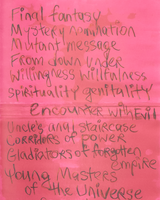 Final fantasy
Mystery
Mutant message
From down under
Willingness Willfulness
spirituality genitality
Encounter with Evil
Uncle's any staircase
Corridors of power
Gladiators of forgotten
Empire
Young Mastors
of the Universe